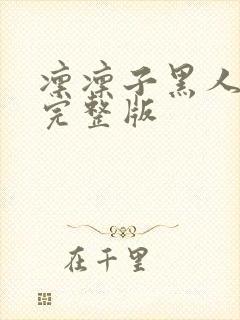 凛凛子黑人
完整版
在千里